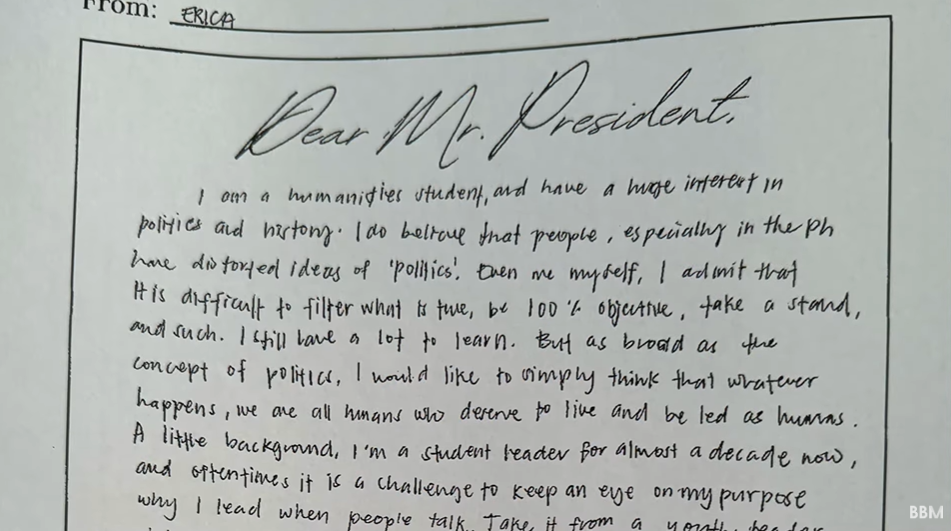 From: ERICA
Dear Mr. President,
I am a humanities student, and have a huge interest in
politics and history. I do believe that people, especially in the Ph
have distorted ideas of 'politics'. Even me myself, I admit that
it is difficult to filter what is true, be 100% objective, take a stand,
and such. I still have a lot to learn. But as broad as the
concept of politics, I would like to simply think that whatever
happens, we are all humans who deserve to live and be led as humans.
A little background, I'm a student leader for almost a decade now,
and oftentimes it is a challenge to keep an eye on my purpose
why I lead when people talk. Take it from a youth leader
BBM